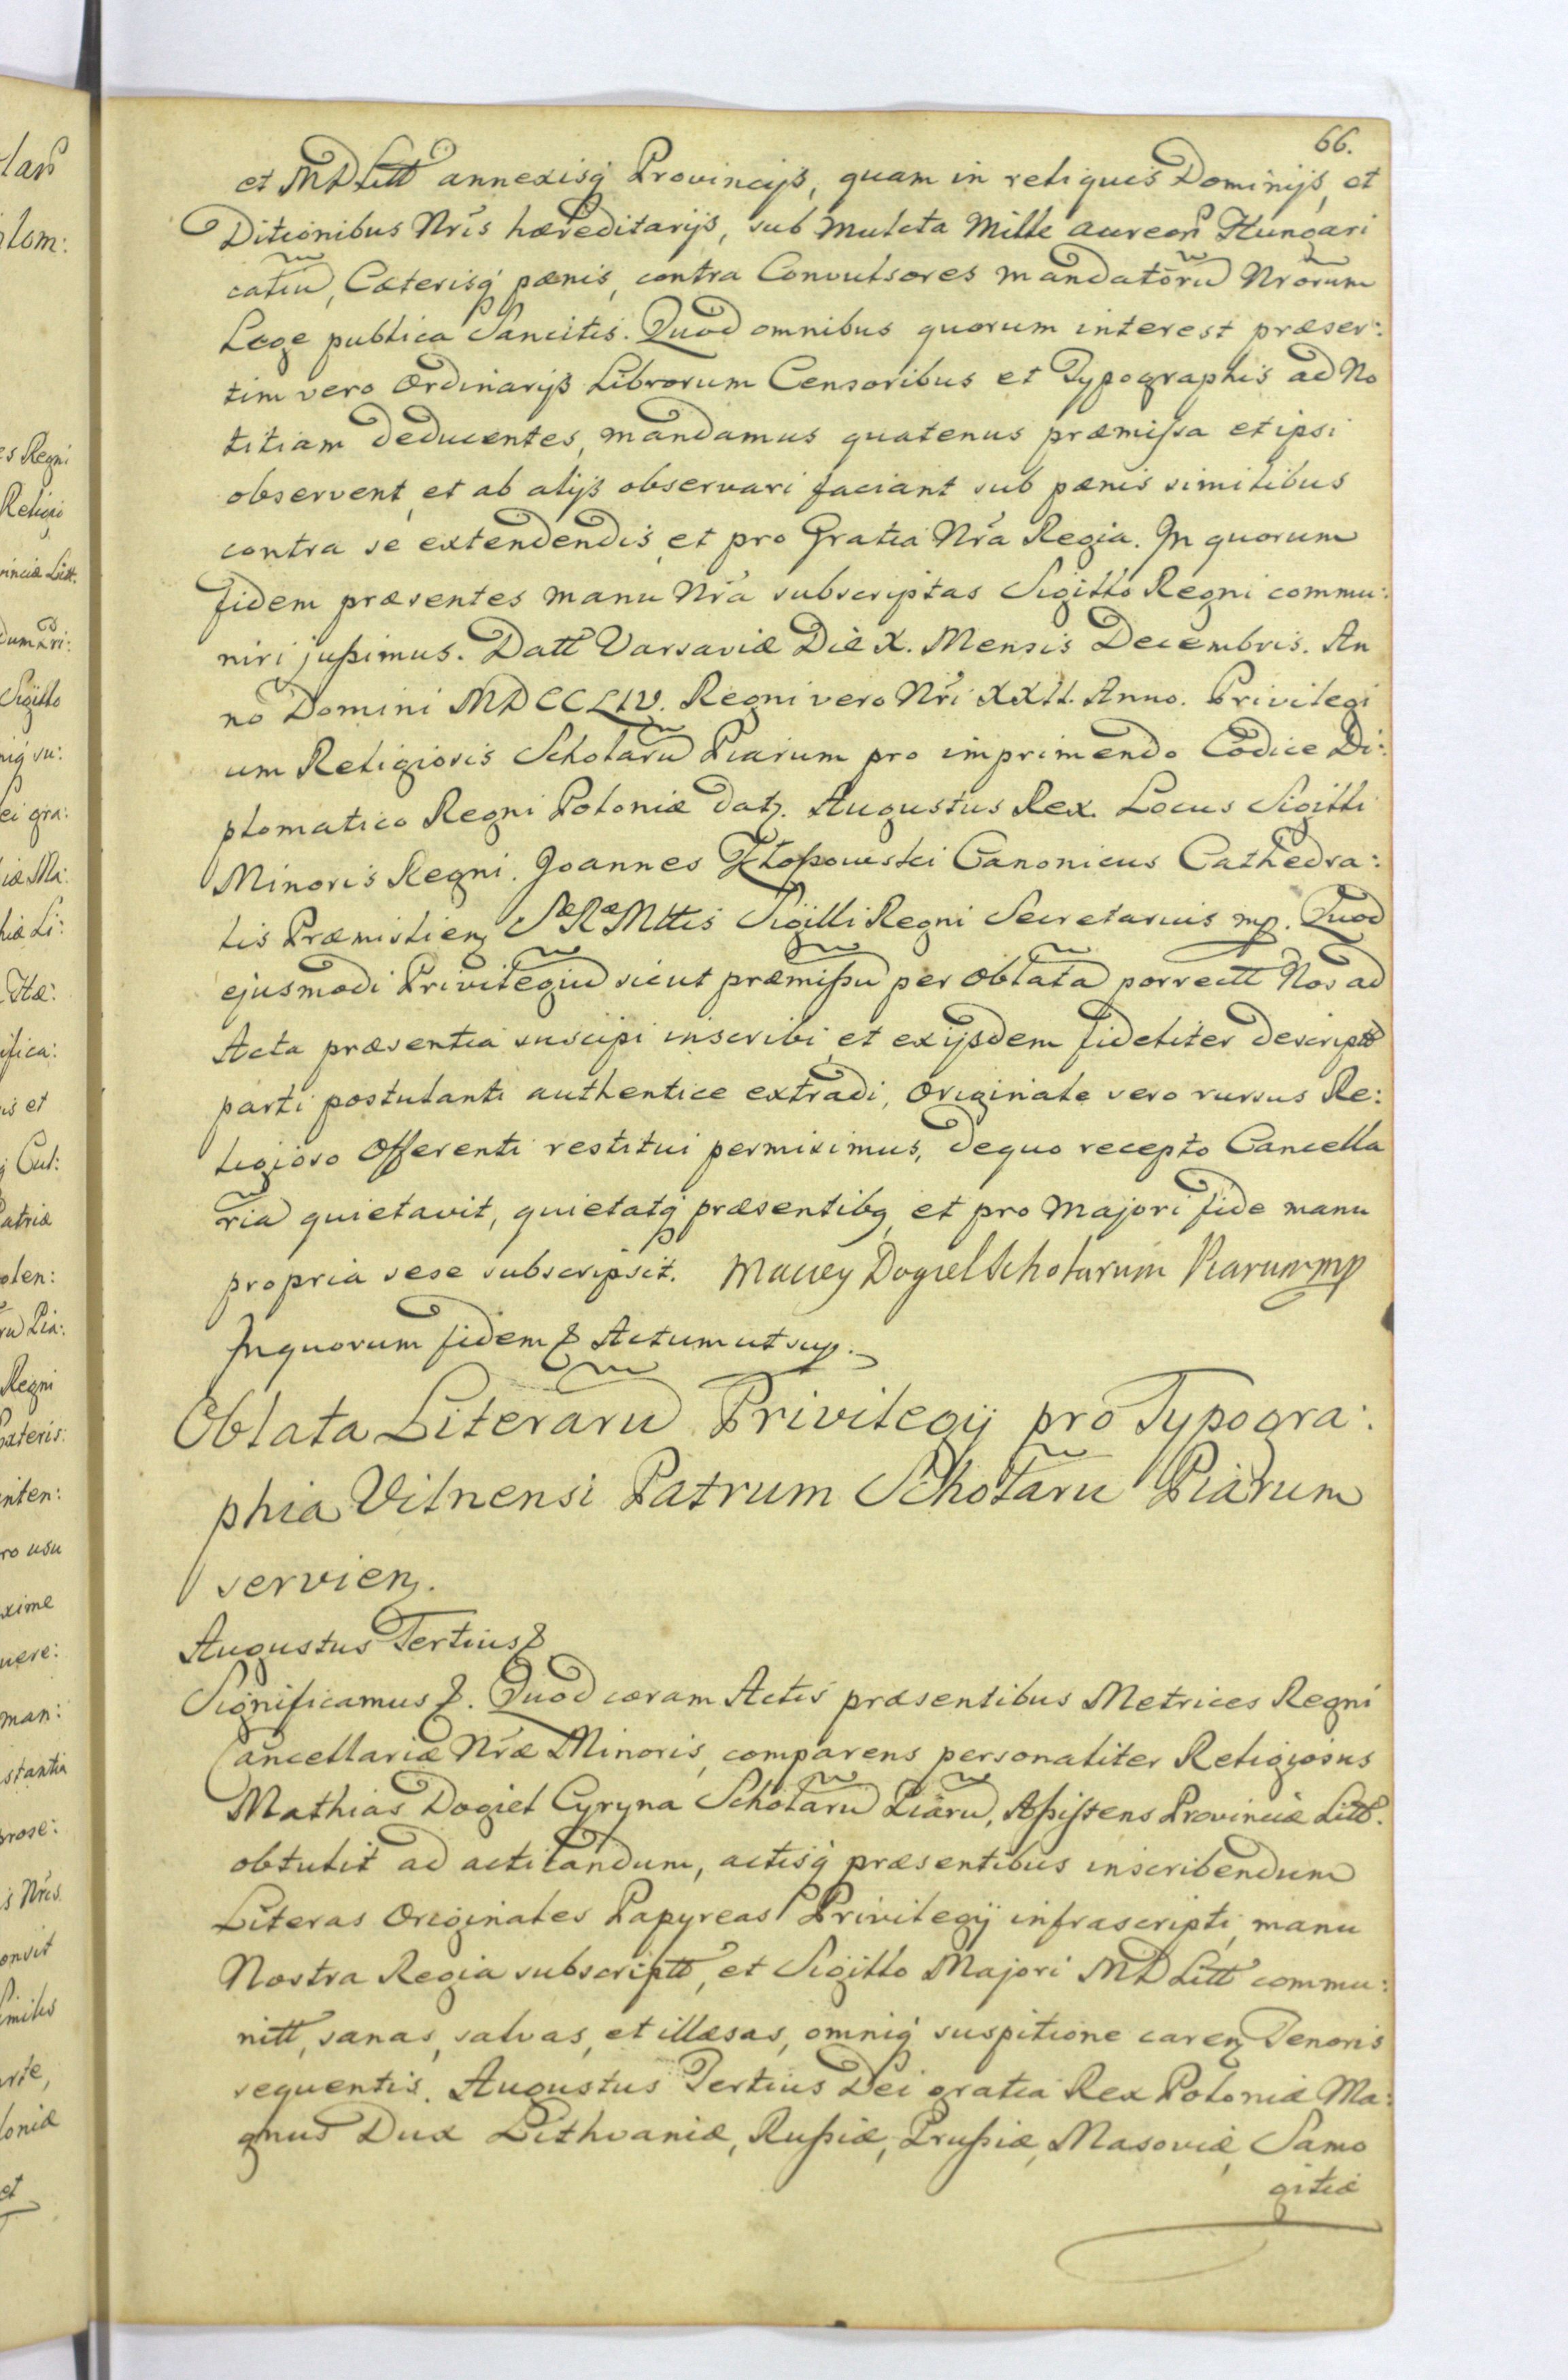 66.
et MDLitt annexisq Provincijs, quam in reliquis Dominijs, et
Ditionibus Nris hæreditarijs, sub mulcta Mille aureor Hungari
catiu, Cæterisq pænis, contra Convulsores mandatoru Nrorum
Lege publica Sancitis. Quod omnibus quorum interest præser:
tim vero Ordinarijs Librorum Censoribus et Typographis ad No
titiam deducentes, mandamus quatenus præmissa et ipsi
observent, et ab alijs observari faciant sub pænis similibus
contra se extendendis, et pro Gratia Nra Regia. In quorum
fidem præsentes manu Nra subscriptas Sigillo Regni commu:
niri jussimus. Datt Varsaviæ Die X. Mensis Decembris. An
no Domini MDCCLIV. Regni vero Nri XXII. Anno. Privilegi
um Religiosis Scholaru Piarum pro imprimendo Codice Di:
plomatico Regni Poloniæ datz. Augustus Rex. Locus Sigilli
Minoris Regni. Joannes Kłossowski Canonicus Cathedra:
lis Præmislienz SæRæMttis Sigilli Regni Secretarius mp. Quod
ejusmodi Privilegiu sicut præmissu per Oblata porrectt Nos ad
Acta præsentia suscipi inscribi, et ex ijsdem fideliter descriptt
parti postulanti authentice extradi, Originale vero rursus Re:
ligioso Offerenti restitui permisimus, de quo recepto Cancella
ria quietavit, quietatq præsentibq, et pro Majori fide manu
propria sese subscripsit. Maciey Dogiel Scholarum Piarum mp
In quorum fidem & Actum ut sup.
Oblata Literaru Privilegij pro Typogra:
phia Vilnensi Patrum Scholaru Piarum
servienz.
Augustus Tertius &
Significamus &. Quod coram Actis præsentibus Metrices Regni
Cancellariæ Nræ Minoris, comparens personaliter Religiosus
Mathias Dogiel Cyryna Scholaru Piaru, Assistens Provinciæ Litt.
obtulit ad acticandum, actisq præsentibus inscribendum
Literas Originales Papyreas Privilegij infrascripti, manu
Nostra Regia subscriptt, et Sigillo Majori MD Litt commu:
nitt, sanas, salvas, et illæsas, omniq suspitione carenz Tenoris
sequentis. Augustus Tertius Dei gratia Rex Poloniæ Ma:
gnus Dux Lithvaniæ, Russiæ, Prussiæ, Masoviæ, Samo
gitiæ